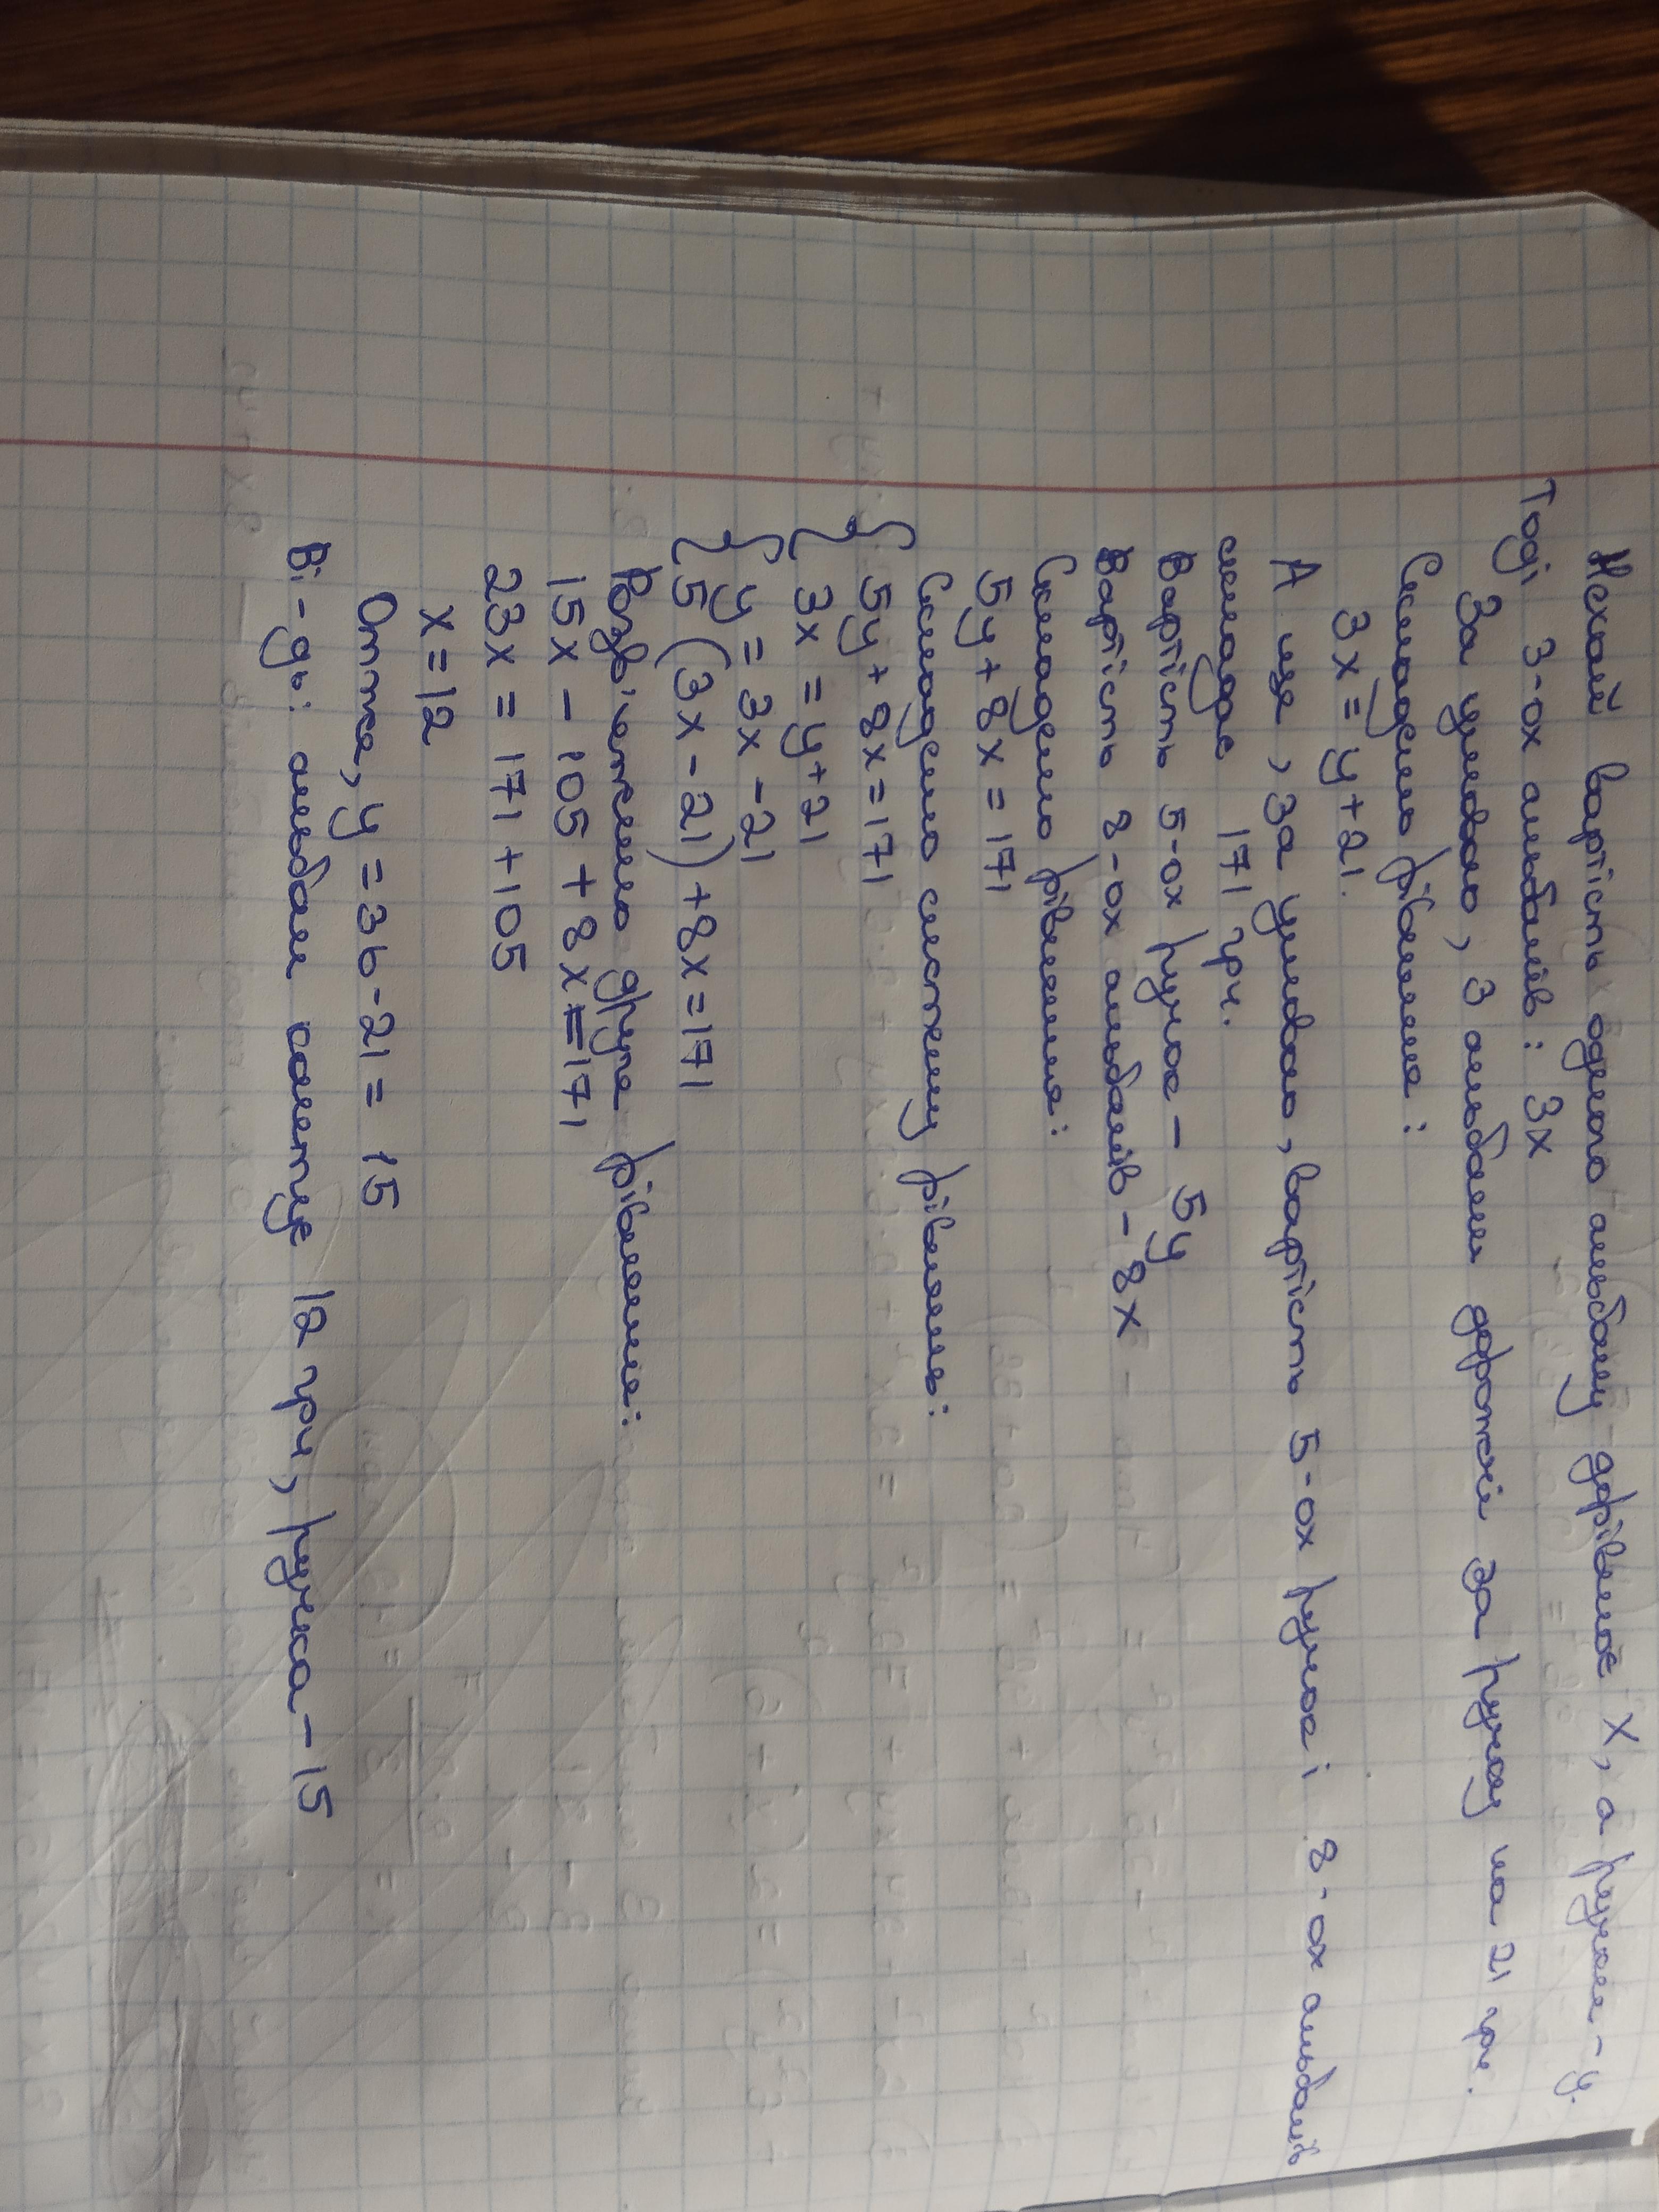 Нехай вартість одного альбому дорівнює x, а ручки - y.
Тоді 3-ох альбомів: 3x
За умовою, 3 альбоми дорожчі за ручку на 21 грн.
Складемо рівняння:
3x = y + 21.
А ще, за умовою, вартість 5-ох ручок і 8-ох альбомів
складає 171 грн.
Вартість 5-ох ручок - 5y
Вартість 8-ох альбомів - 8x
Складемо рівняння:
5y + 8x = 171
Складемо систему рівнянь:
{ 5y + 8x = 171
3x = y + 21
{ y = 3x - 21
5(3x - 21) + 8x = 171
Розв'яжемо друге рівняння:
15x - 105 + 8x = 171
23x = 171 + 105
x = 12
Отже, y = 36 - 21 = 15
Ві-дь: альбом коштує 12 грн, ручка - 15